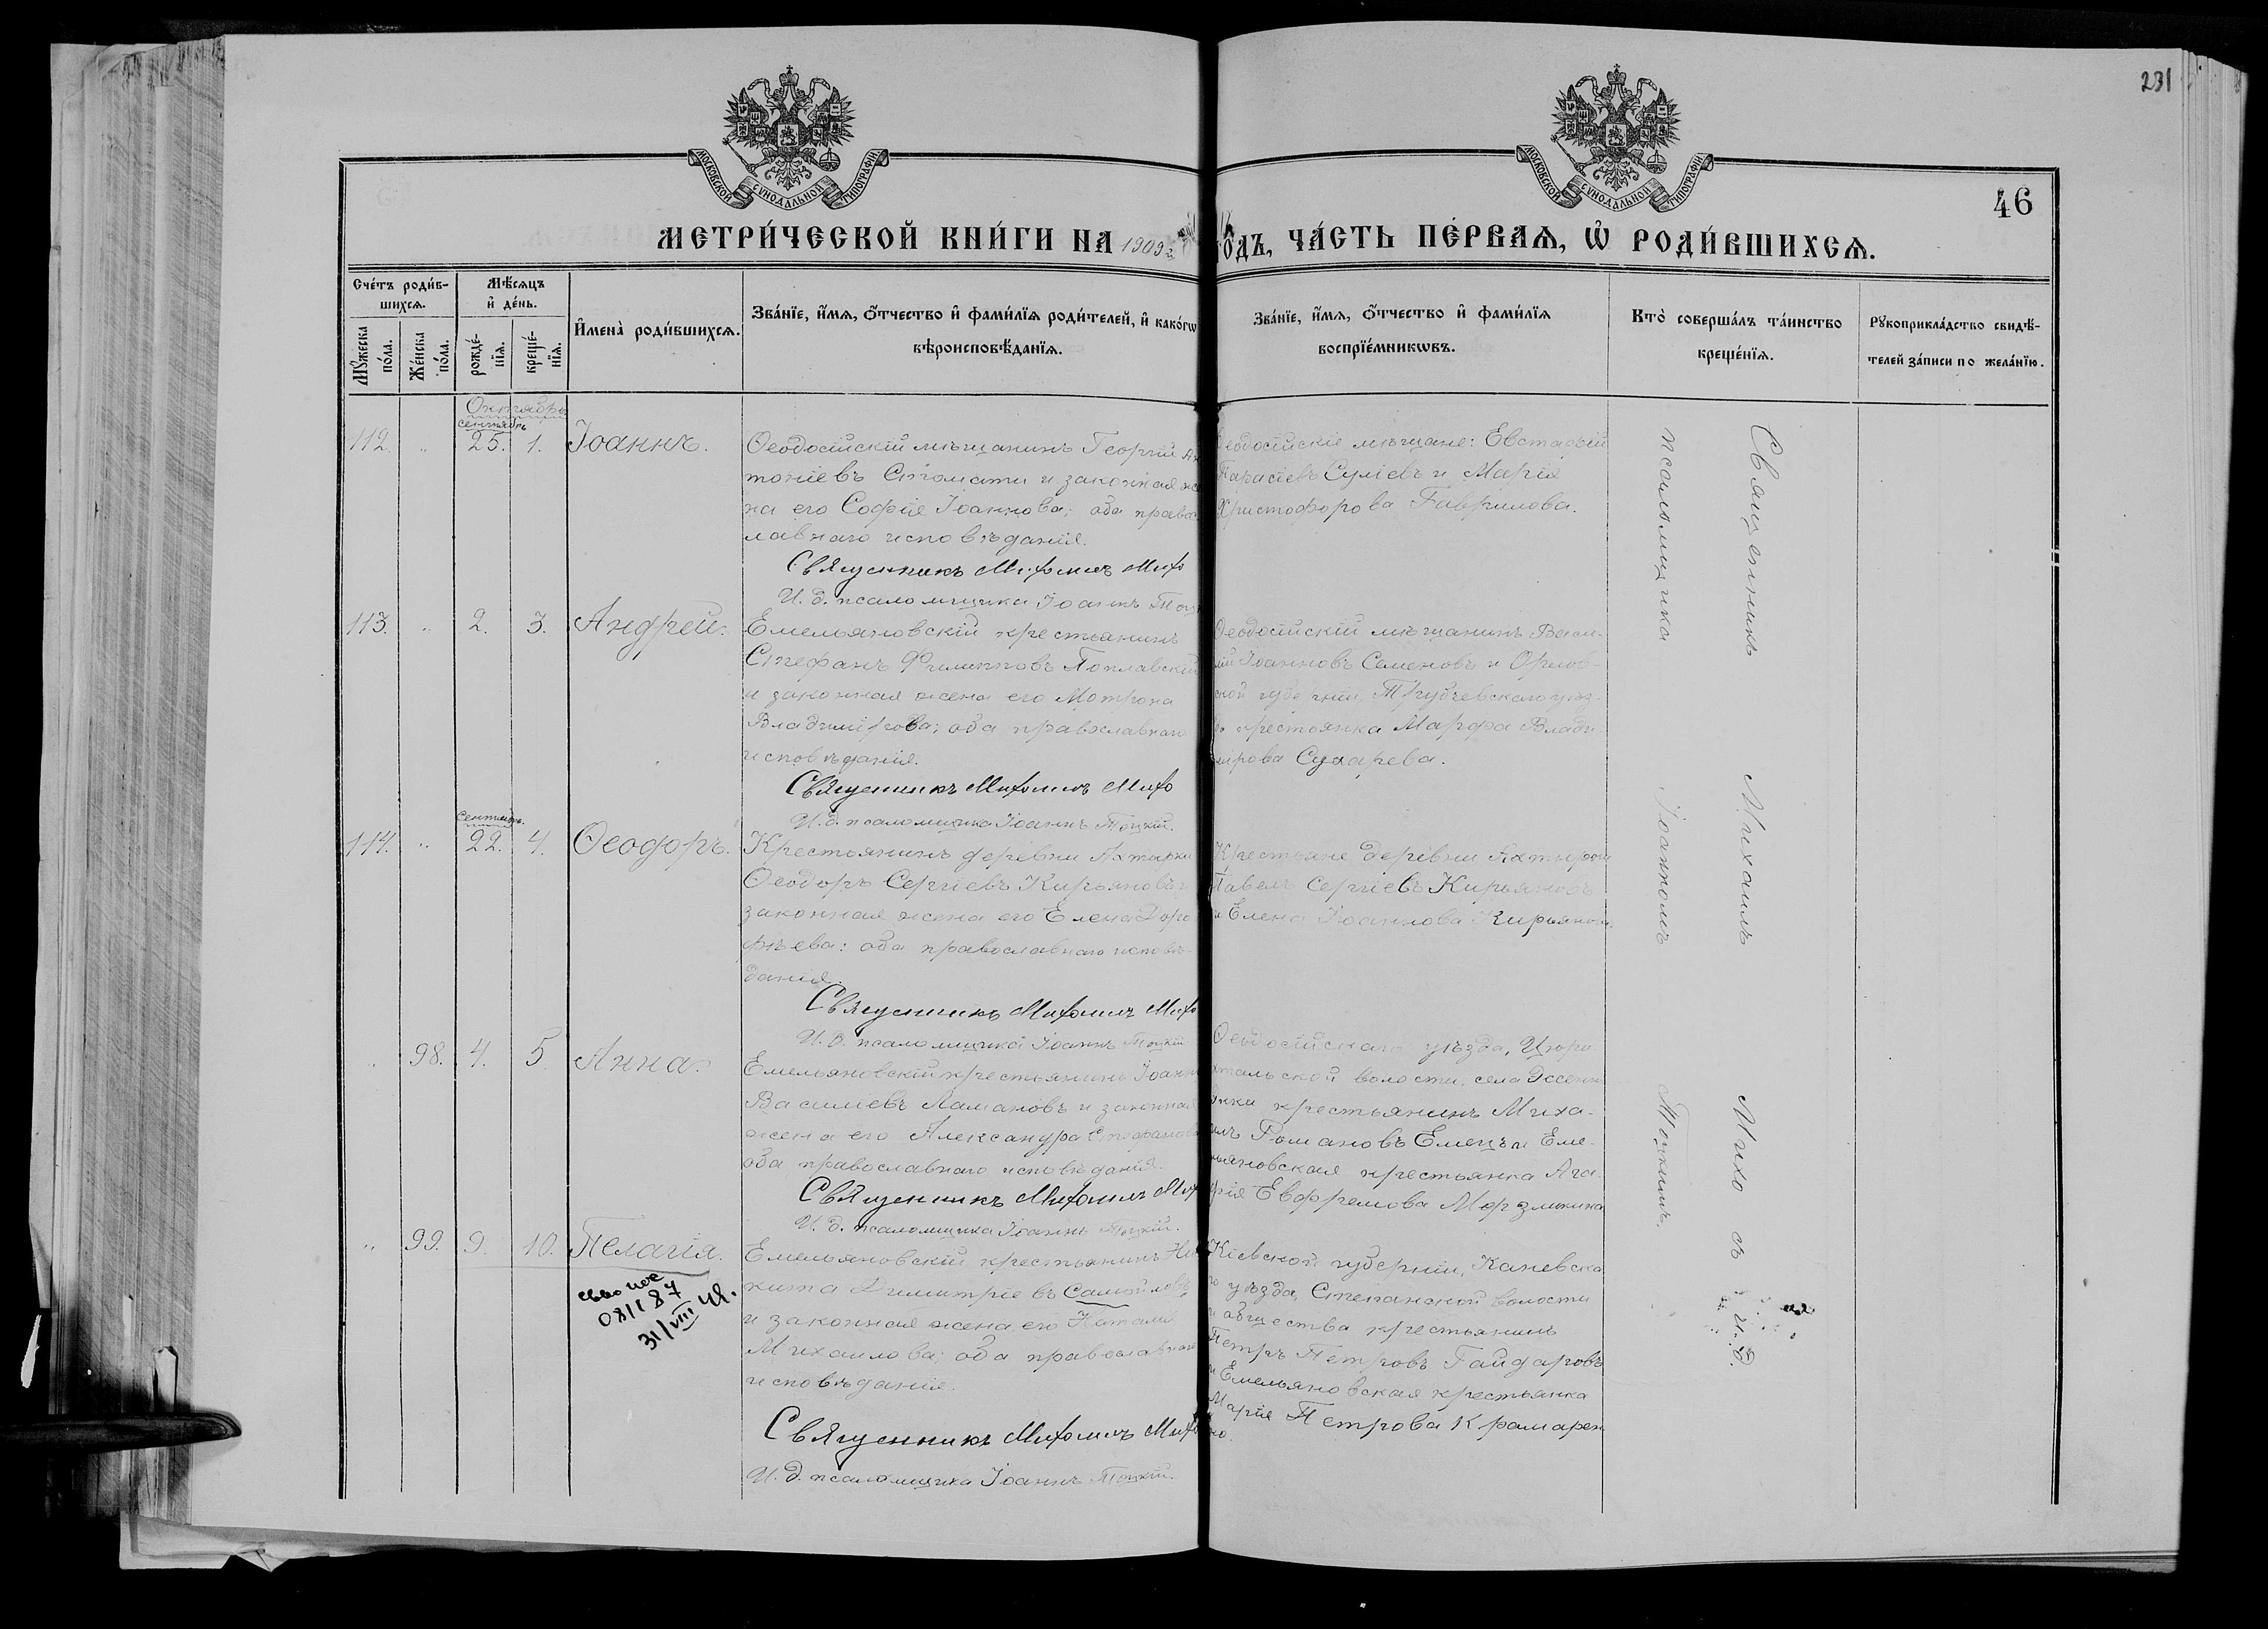 231
МОСКОВСКОЙ СѴНОДАЛЬНОЙ ТИПОГРАФІИ
МОСКОВСКОЙ СѴНОДАЛЬНОЙ ТИПОГРАФІИ
46
МЕТРИ́ЧЕСКОЙ КНИ́ГИ НА 1909й го́дъ, ЧА́СТЬ ПЕ́РВАѦ, Ѡ РОДИ́ВШИХСѦ.
Сче́тъ роди́в-
шихсѧ.
Мꙋ́жеска по́ла.
Же́нска по́ла.
Мѣ́сѧцъ
и҆ де́нь.
рожде́-
нїѧ.
креще́-
нїѧ.
И҆мена̀ роди́вшихсѧ.
Зва́нїе, и҆́мѧ, ѻ҆́тчество и҆ фами́лїѧ роди́телей, и҆ како́гѡ
вѣроисповѣ́данїѧ.
Зва́нїе, и҆́мѧ, ѻ҆́тчество и҆ фами́лїѧ
воспрїе́мникѡвъ.
Кто̀ соверша́лъ та́инство
креще́нїѧ.
Рꙋкоприкла́дство свидѣ́-
телей за́писи по жела́нїю.
Октябрь
сентябрь
112. " 25. 1. Іоаннъ.
Ѳеодосійскій мѣщанинъ Георгій Ан
тоніевъ Стомати и законная же
на его Софія Іоаннова; оба право
лавнаго исповѣданія.
Священникъ Михаилъ Михо
И. д. псаломщика Іоаннъ Тоц
Ѳеодосійскіе мѣщане: Евстафій
Тарасіевъ Суліевъ и Марія
Христофорова Гаврилова.
113. " 2. 3. Андрей.
Емельяновскій крестьянинъ
Стефанъ Филипповъ Поплавскій
и законная жена его Мотрона
Владимірова; оба православнаго
исповѣданія.
Священникъ Михаилъ Михо
И. д. псаломщика Іоаннъ Тоцкій.
Ѳеодосійскій мѣщанинъ Васи-
лій Іоанновъ Семеновъ и Орлов-
ской губерніи, Трубчевскаго уѣз-
да крестьянка Марфа Влади
мірова Сударева.
сентябрь.
114. " 22. 4. Ѳеодоръ.
Крестьянинъ деревни Ахтырки
Ѳеодоръ Сергіевъ Кирьяновъ и
законная жена его Елена Доро
фѣева: оба православнаго исповѣ-
данія.
Священникъ Михаилъ Михо
И. д. псаломщика Іоаннъ Тоцкій
Крестьяне деревни Ахтырки
Павелъ Сергіевъ Кирьяновъ
и Елена Іоаннова Кирьянова.
" 98. 4. 5 Анна.
Емельяновскій крестьянинъ Іоаннъ
Василіевъ Ламановъ и законная
жена его Александра Стефанова
оба православнаго исповѣданія.
Священникъ Михаилъ Мих
И. д. псаломщика Іоаннъ Тоцкій.
Ѳеодосійскаго уѣзда, Цюри
хтальской волости, села
крестьянинъ Миха-
илъ Романовъ Емецъ и Еме-
льяновская крестьянка Ага-
фія Евфремова
" 99. 9. 10. Пелагія.
31/VIII 48.
Емельяновскій крестьянинъ Ни
кита Димитріевъ Самойловъ
и законная жена его Наталія
Михаилова; оба православнаго
исповѣданія.
Священникъ Михаилъ Михо
И. д. псаломщика Іоаннъ Тоцкій.
Кіевской губерніи, Каневска
го уѣзда, Степанской волости
и общества крестьянинъ
Петръ Петровъ Гайдаровъ
и Емельяновская крестьянка
Марія Петрова Крамарен
ко.
Священникъ Михаилъ Михо съ и. д.
псаломщика Іоанномъ Тоцкимъ.